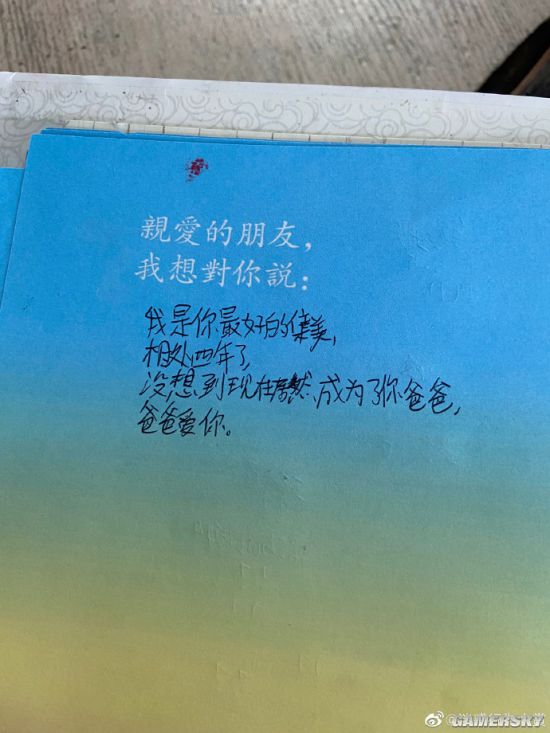 親愛的朋友，
我想對你說：
我是你最好的集美，
相处四年了，
没想到现在居然成为了你爸爸，
爸爸爱你。
GAMERSKY